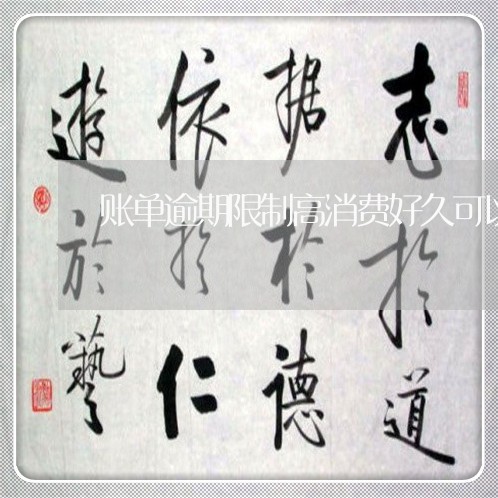 志於道
据於德
依於仁
遊於藝
账单逾期限制高消费好久可以